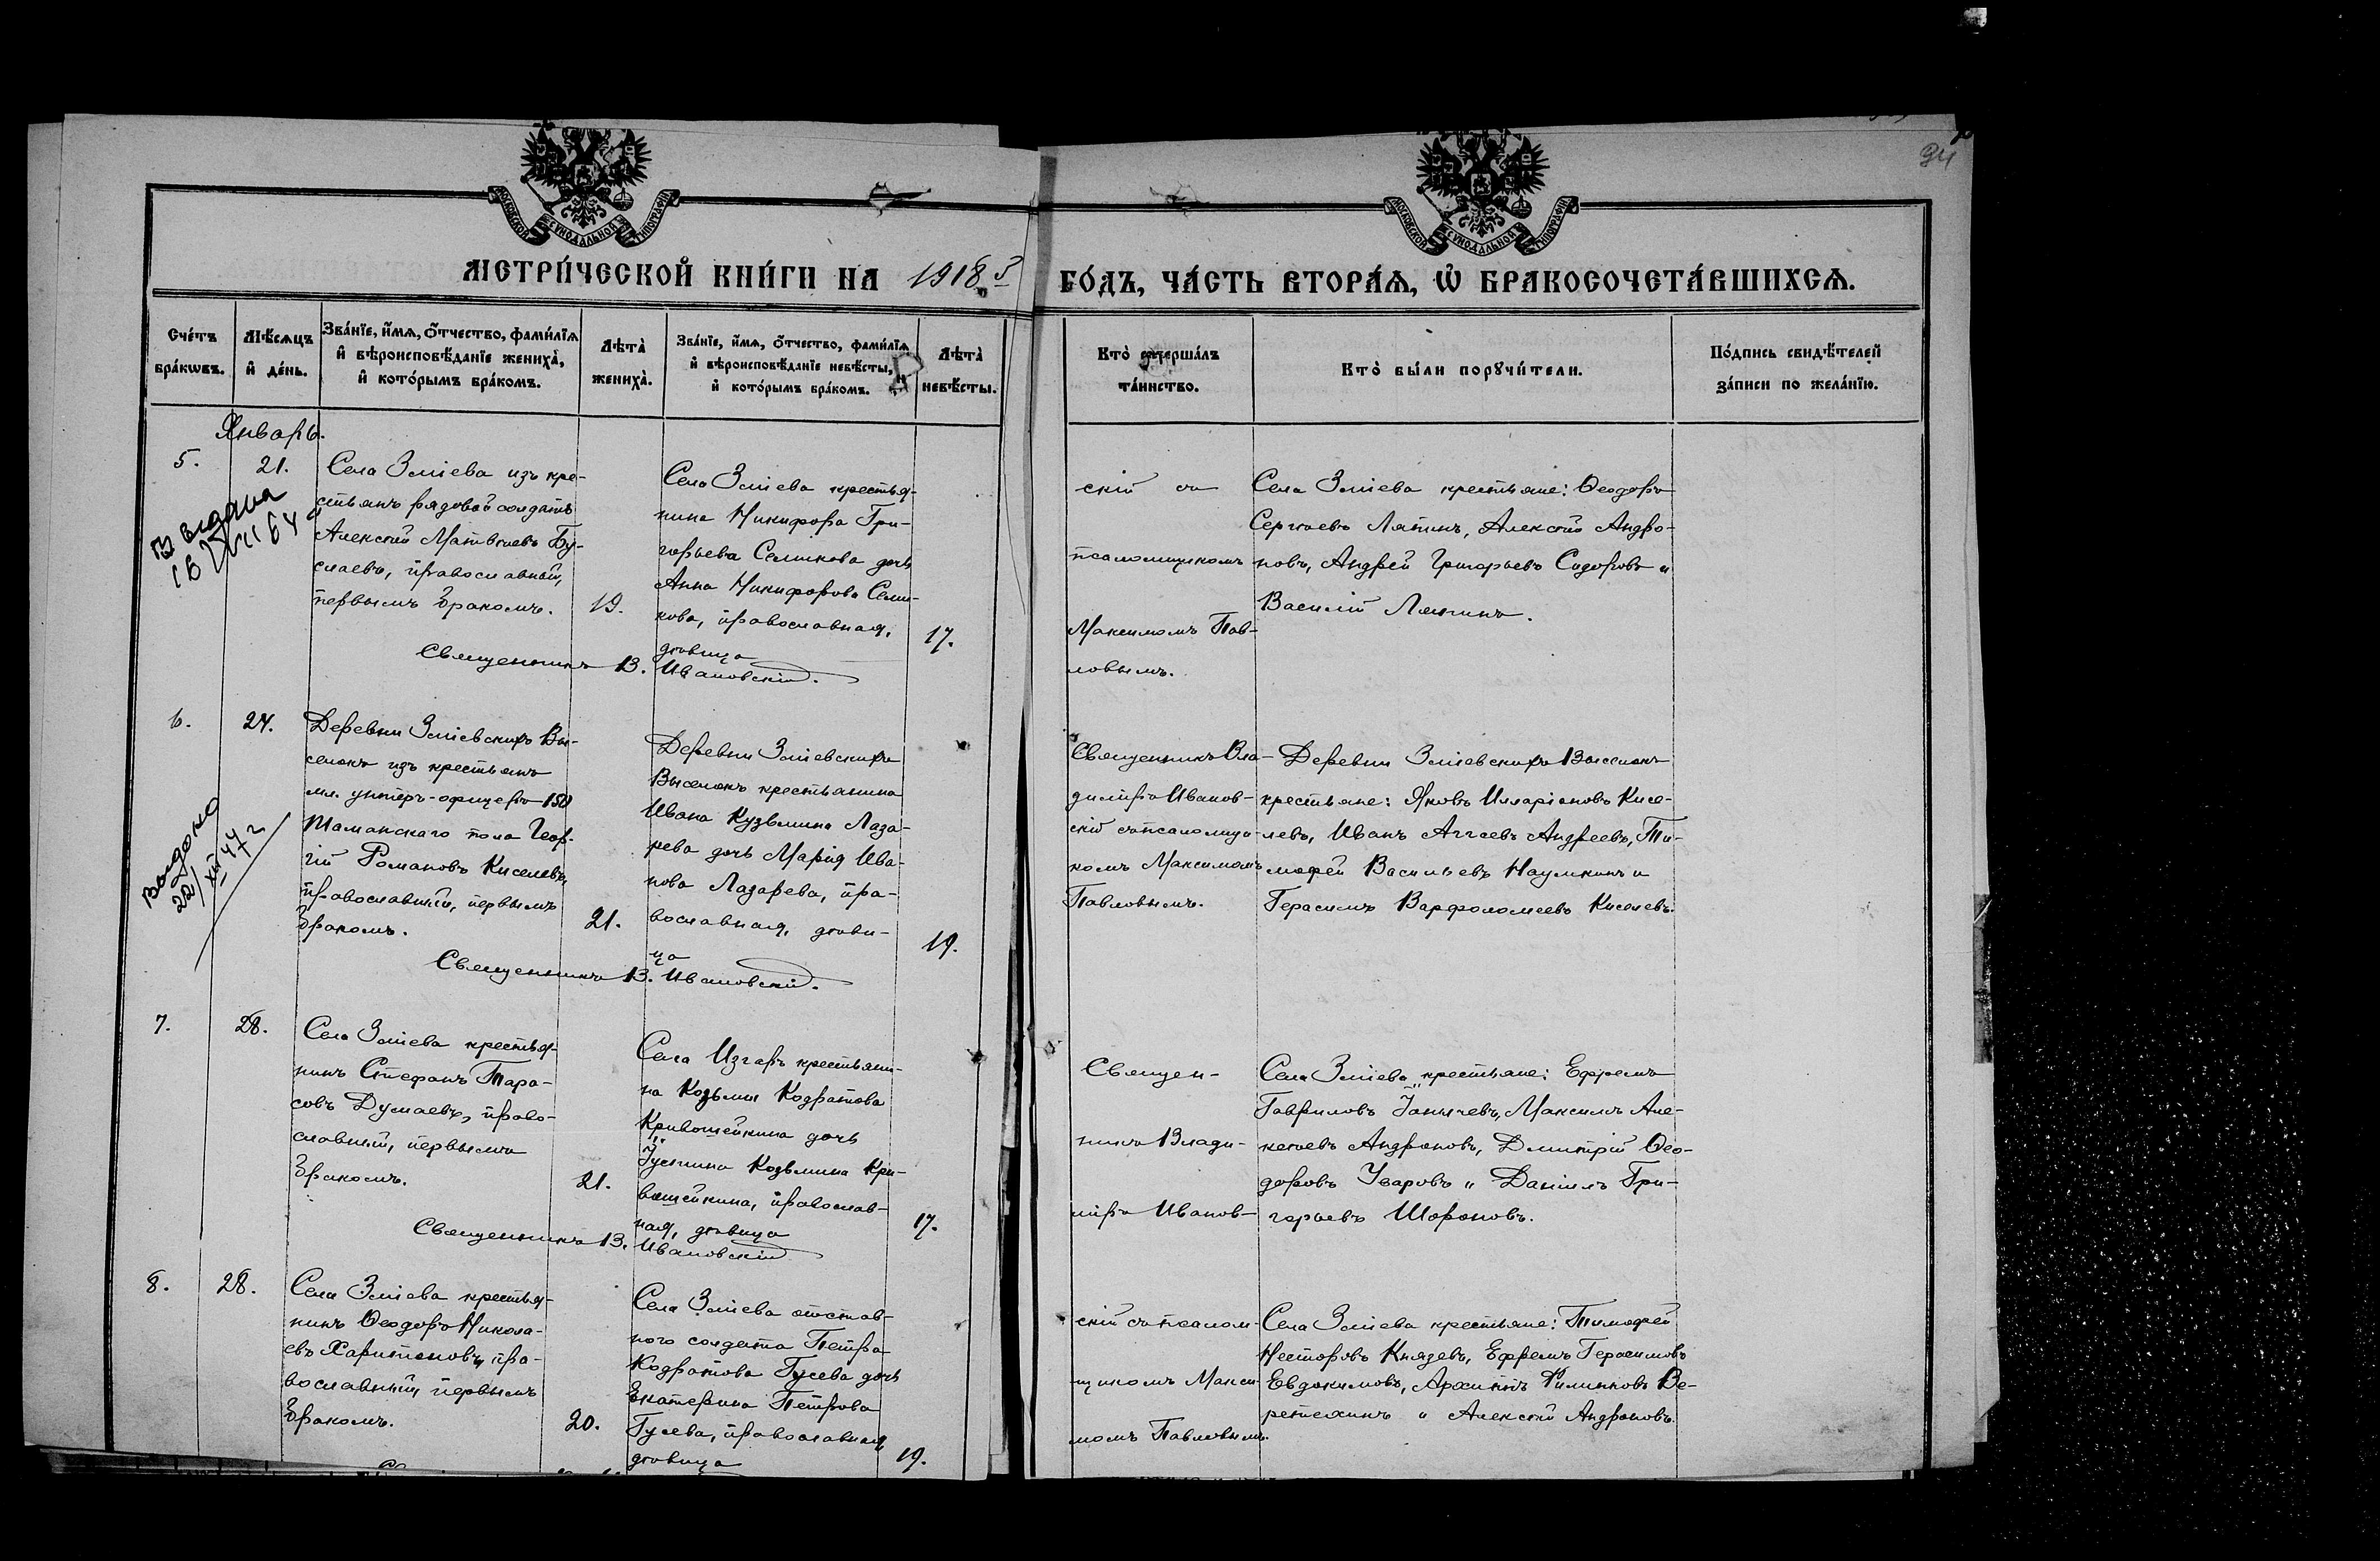 94
МОСКОВСКОЙ СУНОДАЛЬНОЙ ТИПОГРАФІИ
МОСКОВСКОЙ СУНОДАЛЬНОЙ ТИПОГРАФІИ
МЕТРИ́ЧЕСКОЙ КНИ́ГИ НА 1918 й ГО́ДЪ, ЧА́СТЬ ВТОРА́Ѧ, Ѡ҆ БРАКОСОЧЕТА́ВШИХСѦ.
Сче́тъ бра́кѡвъ.
Мѣ́сѧцъ и҆ де́нь.
Зва́нїе, и҆́мѧ, ѻ҆́тчество, фами́лїѧ
и҆ вѣроисповѣ́данїе жениха̀,
и҆ кото́рымъ бра́комъ.
Лѣта̀ жениха̀.
Зва́нїе, и҆́мѧ, ѻ҆́тчество, фами́лїѧ
и҆ вѣроисповѣ́данїе невѣ́сты,
и҆ кото́рымъ бра́комъ.
Лѣта̀ невѣ́сты.
Кто̀ соверша́лъ
та́инство.
Кто̀ бы́ли порꙋчи́тели.
По́дпись свидѣ́телей
за́писи по жела́нїю.
Январь.
5.
21.
Села Зміева изъ кре-
стьянъ рядовой солдатъ
Алексѣй Матвѣевъ Бу-
слаевъ, православный,
первымъ бракомъ.
19.
Села Зміева крестья-
нина Никифора Гри-
горьева Селикова дочь
Анна Никифорова Сели-
кова, православная,
дѣвица
17.
Священникъ В. Ивановскій.
скій съ
псаломщикомъ
Максимомъ Пав-
ловымъ.
Села Зміева крестьяне: Ѳеодоръ
Сергѣевъ Ляпинъ, Алексѣй Андро-
новъ, Андрей Григорьевъ Сидоровъ и
Василій Ляпинъ.
6.
24.
Выдано
22/XII 47 г
Деревни Зміевскихъ Вы-
селокъ изъ крестьянъ
мл. унтеръ-офицеръ 150
Таманскаго полка Геор-
гій Романовъ Киселевъ,
православный, первымъ
бракомъ.
21.
Деревни Зміевскихъ
Выселокъ крестьянина
Ивана Кузьмина Лаза-
рева дочь Марія Ива-
нова Лазарева, пра-
вославная, дѣви-
ца
19.
Священникъ В. Ивановскій.
Священникъ Вла-
диміръ Иванов-
скій съ псаломщи-
комъ Максимомъ
Павловымъ.
Деревни Зміевскихъ Выселокъ
крестьяне: Яковъ Илларіоновъ Кисе-
левъ, Иванъ Аггеевъ Андреевъ, Ти-
мофей Васильевъ Наумкинъ и
Герасимъ Варфоломеевъ Киселевъ.
7.
28.
Села Зміева крестья-
нинъ Стефанъ Тара-
совъ Думаевъ, право-
славный, первымъ
бракомъ.
21.
Села Изгаръ крестьяни-
на Козьмы Кодратова
Кривошейкина дочь
Іустина Козьмина Кри-
вошейкина, православ-
ная, дѣвица
17.
Священникъ В. Ивановскій
Священ-
никъ Влади-
міръ Иванов-
Села Зміева крестьяне: Ефремъ
Гавриловъ Максимъ Але-
ксѣевъ Андроновъ, Дмитрій Ѳео-
доровъ Уваровъ и Даніилъ Гри-
горьевъ Шороновъ.
8.
28.
Села Зміева крестья-
нинъ Ѳеодоръ Никола-
евъ Харитоновъ, пра-
вославный, первымъ
бракомъ.
20.
Села Зміева отстав-
ного солдата Петра
Кодратова Гусева дочь
Екатерина Петрова
Гусева, православная,
дѣвица
19.
скій съ псалом-
щикомъ Макси-
момъ Павловымъ.
Села Зміева крестьяне: Тимофей
Несторовъ Князевъ, Ефремъ Герасимовъ
Евдокимовъ, Архиппъ Филипповъ Ве-
ретехинъ и Алексѣй Андроновъ.